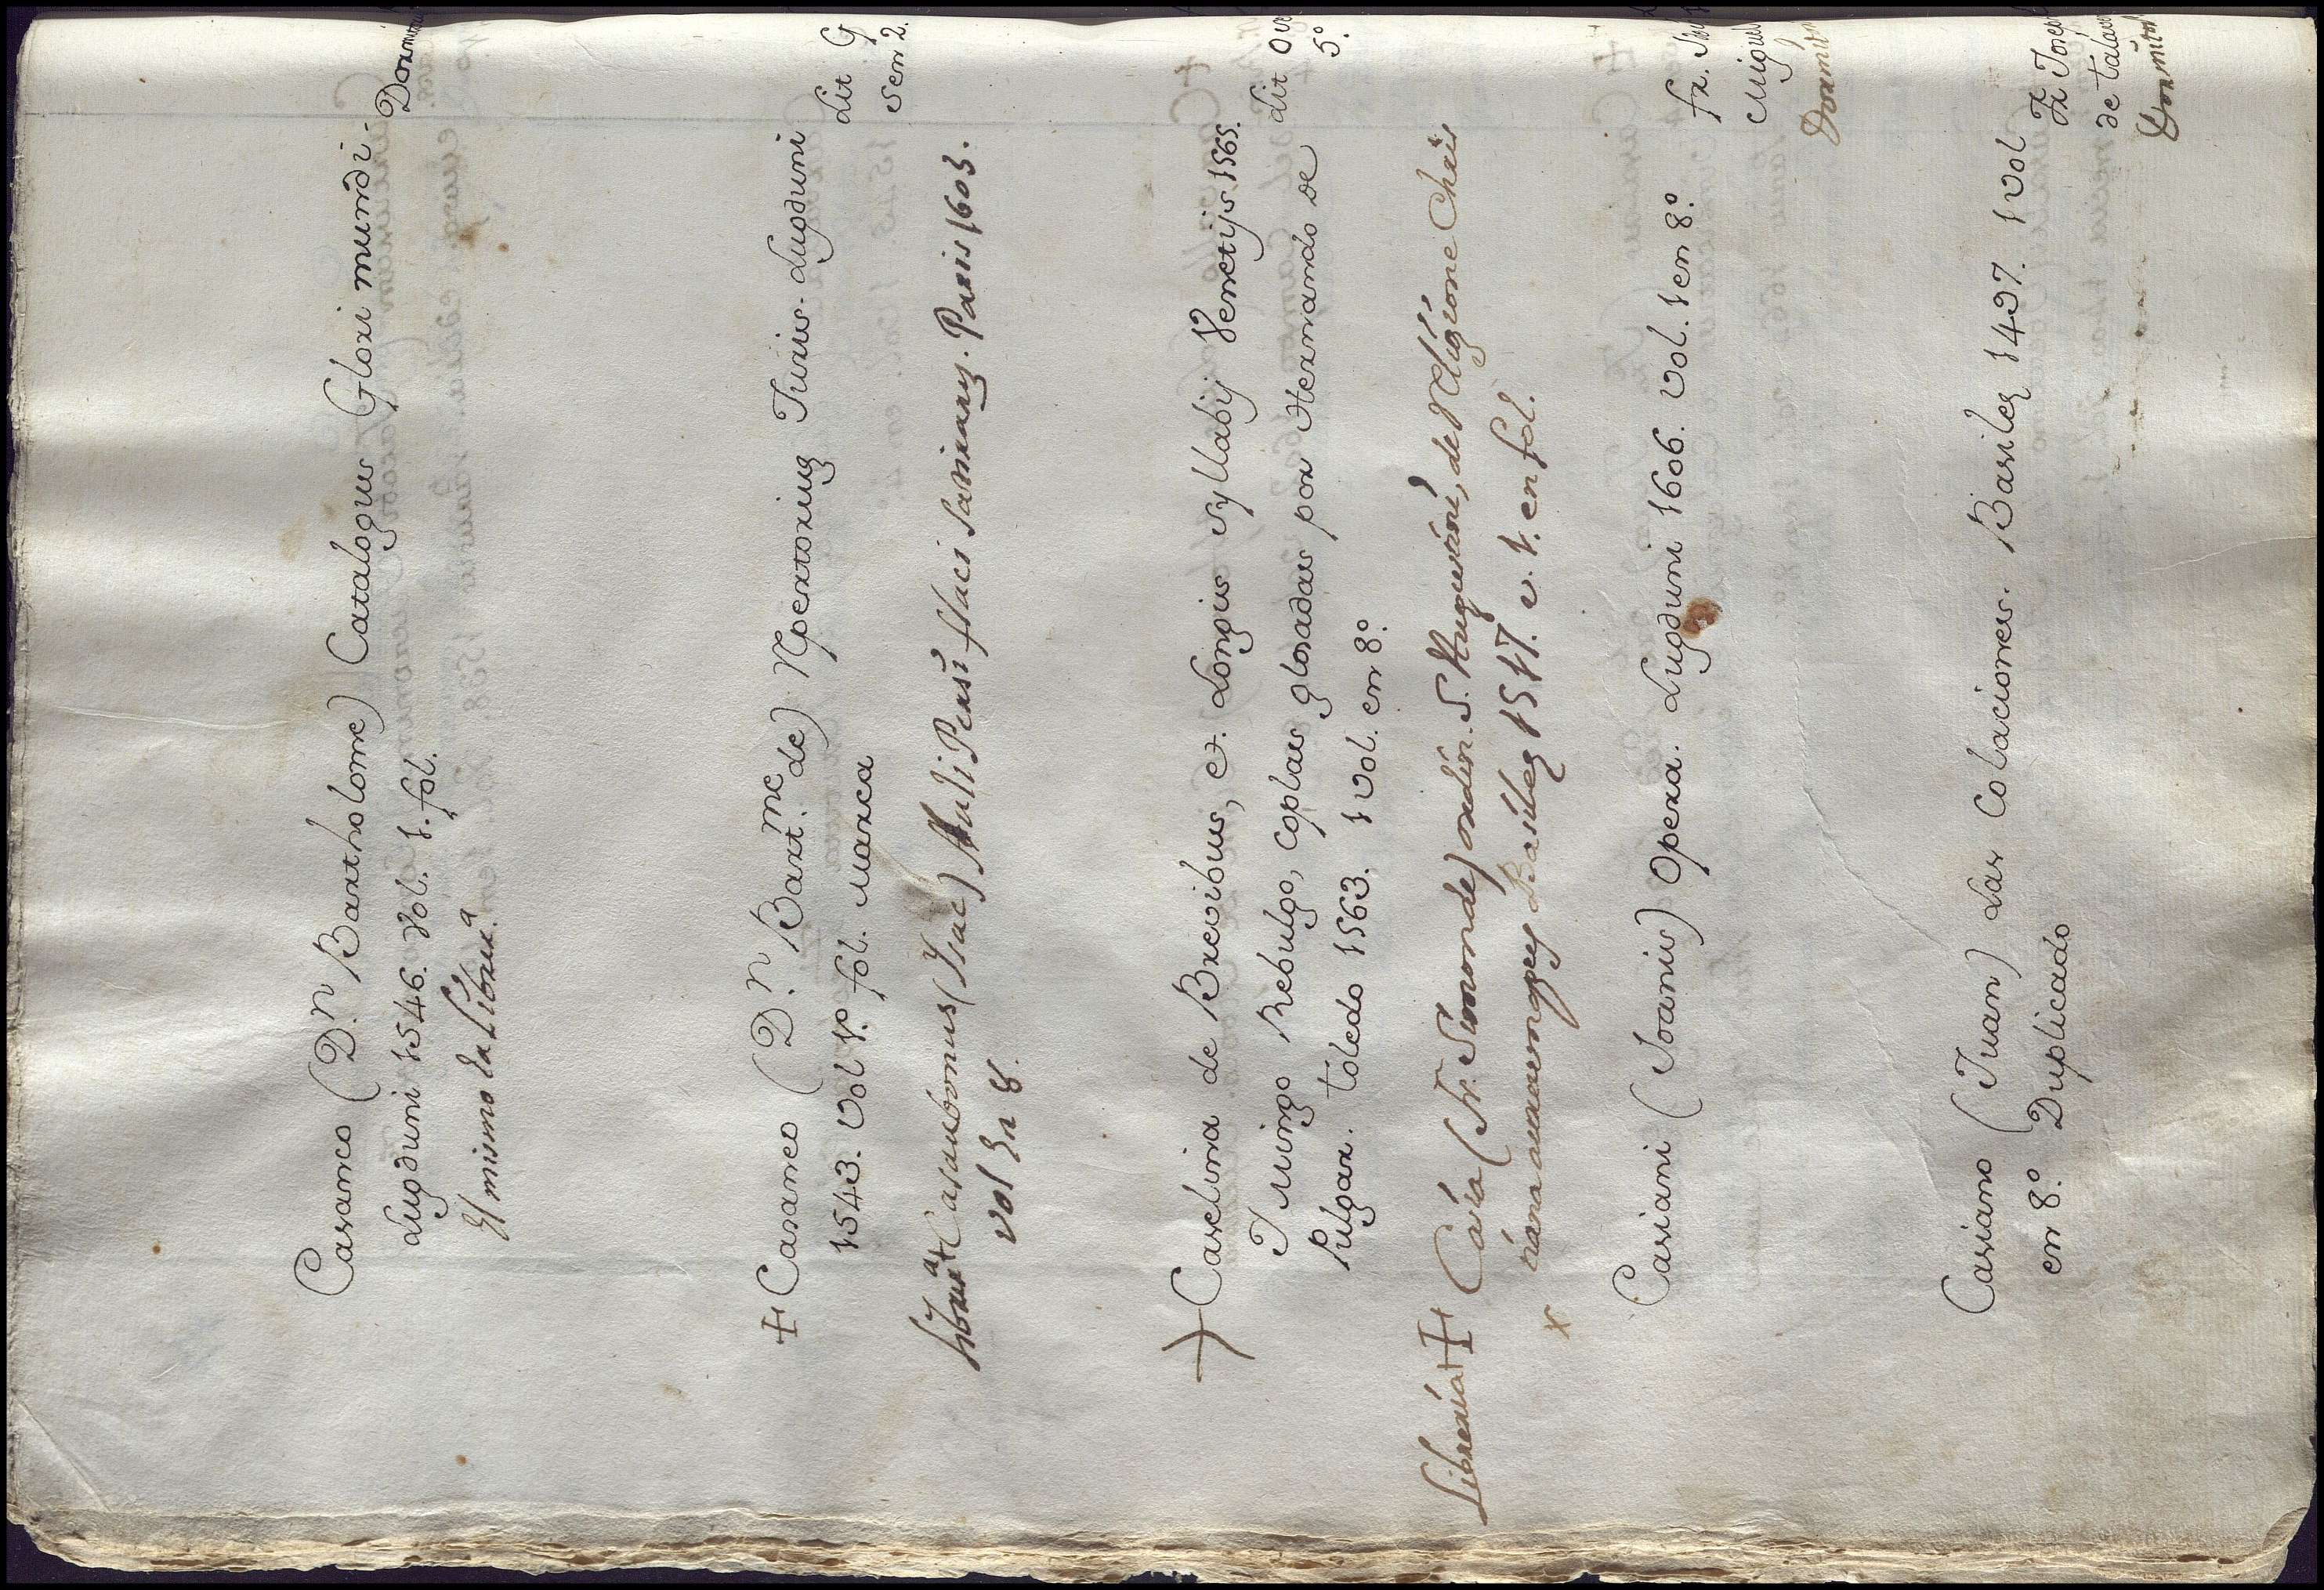 Casaneo (D.n Bartholome) Catalogus Glori mundi-
Lugduni 1546. Vol. 1. fol.
El mismo la Libra.a
+ Casaneo (D.n Bart.me de) Repertoriuz Turius. Lugduni Lit G
1543. Vol 1.o fol. Marca sen 2.
Libra.a + Casaubonus (Isac) Auli Persii flaci Satirarz. Paris 1603.
vol En 8.
Caselina de Brevibus, et. Longis syllabij Venetijs 1565.
T Mingo Rebulgo, coplas glosadas por Hernando de Lit
Pulgar. Toledo 1563. 1 vol. en 8.o 5.o
Libreria + Casia (Fr. Simon de) ordin. S. Augustini, de Religione Chris
tiana Basileę 1517. v. 1. en fol.
x
Casiani (Joanis) Opera. Lugduni 1606. Vol. 1 en 8.o
fr.
Miguel
Casiano (Juan) Las Colaciones. Basileę 1497. 1 vol
en 8.o Duplicado
Fr Josep
de talave